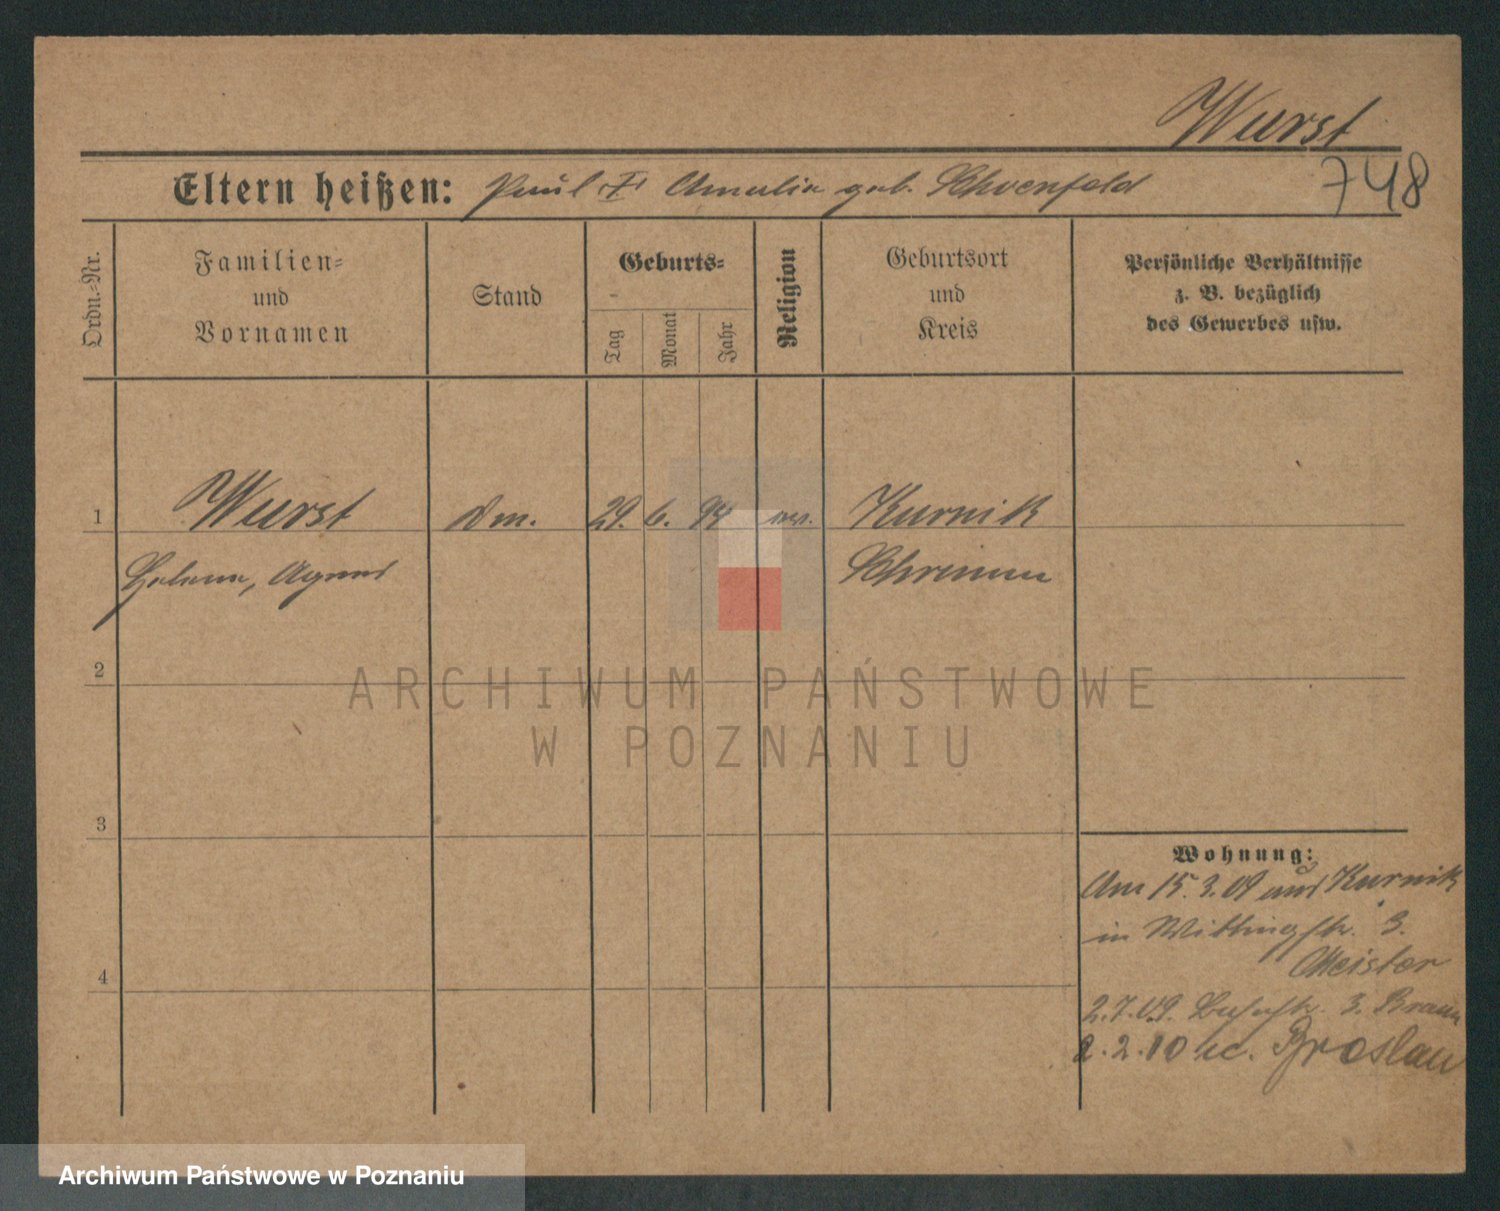 Wurst
748
Eltern heißen: Paul Amalia geb. Schoenfeld
Ordn.-Nr.
Familien-
und
Vornamen
Stand
Geburts-
Tag
Monat
Jahr
Religion
Geburtsort
und
Kreis
Persönliche Verhältnisse
z. B. bezüglich
des Gewerbes usw.
1 Wurst 29. 6. 94 Kurnik
Helene, Agnes Schrimm
ARCHIWUM PAŃSTWOWE
W POZNANIU
2
3
4
Wohnung:
Am 15.3.09 aus Kurnik
in 3.
Meister
2.7.09. 3. Braun
2.10 Breslau
Archiwum Państwowe w Poznaniu